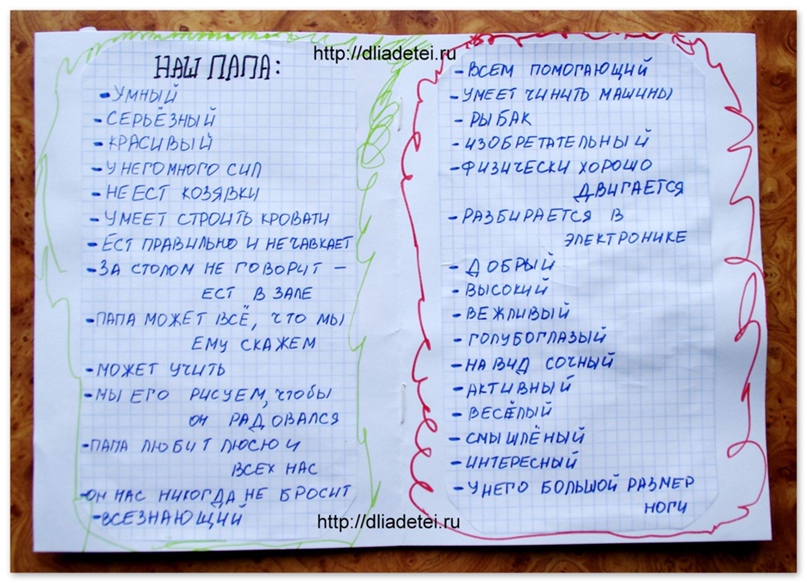 http://dliadetei.ru
НАШ ПАПА:
- УМНЫЙ
- СЕРЬЁЗНЫЙ
- КРАСИВЫЙ
- У НЕГО МНОГО СИЛ
- НЕ ЕСТ КОЗЯВКИ
- УМЕЕТ СТРОИТЬ КРОВАТИ
- ЕСТ ПРАВИЛЬНО И НЕ ЧАВКАЕТ
- ЗА СТОЛОМ НЕ ГОВОРИТ –
ЕСТ В ЗАЛЕ
- ПАПА МОЖЕТ ВСЁ, ЧТО МЫ
ЕМУ СКАЖЕМ
- МОЖЕТ УЧИТЬ
- МЫ ЕГО РИСУЕМ, ЧТОБЫ
ОН РАДОВАЛСЯ
- ПАПА ЛЮБИТ ЛЮСЮ И
ВСЕХ НАС
- ОН НАС НИКОГДА НЕ БРОСИТ
- ВСЕЗНАЮЩИЙ
- ВСЕМ ПОМОГАЮЩИЙ
- УМЕЕТ ЧИНИТЬ МАШИНЫ
- РЫБАК
- ИЗОБРЕТАТЕЛЬНЫЙ
- ФИЗИЧЕСКИ ХОРОШО
ДВИГАЕТСЯ
- РАЗБИРАЕТСЯ В
ЭЛЕКТРОНИКЕ
- ДОБРЫЙ
- ВЫСОКИЙ
- ВЕЖЛИВЫЙ
- ГОЛУБОГЛАЗЫЙ
- НА ВИД СОЧНЫЙ
- АКТИВНЫЙ
- ВЕСЁЛЫЙ
- СМЫШЛЁНЫЙ
- ИНТЕРЕСНЫЙ
- У НЕГО БОЛЬШОЙ РАЗМЕР
НОГИ
http://dliadetei.ru